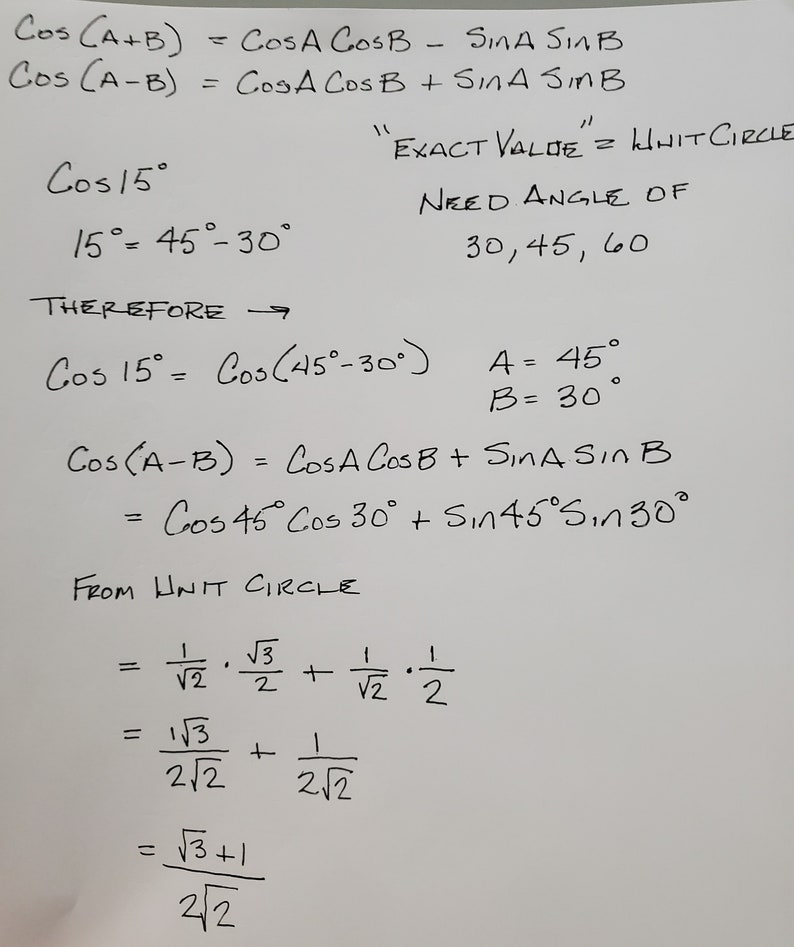 Cos (A+B) = CosA CosB - SinA SinB
Cos (A-B) = CosA CosB + SinA SinB
"EXACT VALUE" = UNIT CIRCLE
Cos 15°
NEED ANGLE OF
15° = 45° - 30°
30, 45, 60
THEREFORE →
Cos 15° = Cos(45°-30°) A = 45°
B = 30°
Cos(A-B) = CosA CosB + SinA Sin B
= Cos 45° Cos 30° + Sin 45° Sin 30°
FROM UNIT CIRCLE
= 1/√2 · √3/2 + 1/√2 · 1/2
= 1√3/2√2 + 1/2√2
= √3+1/2√2